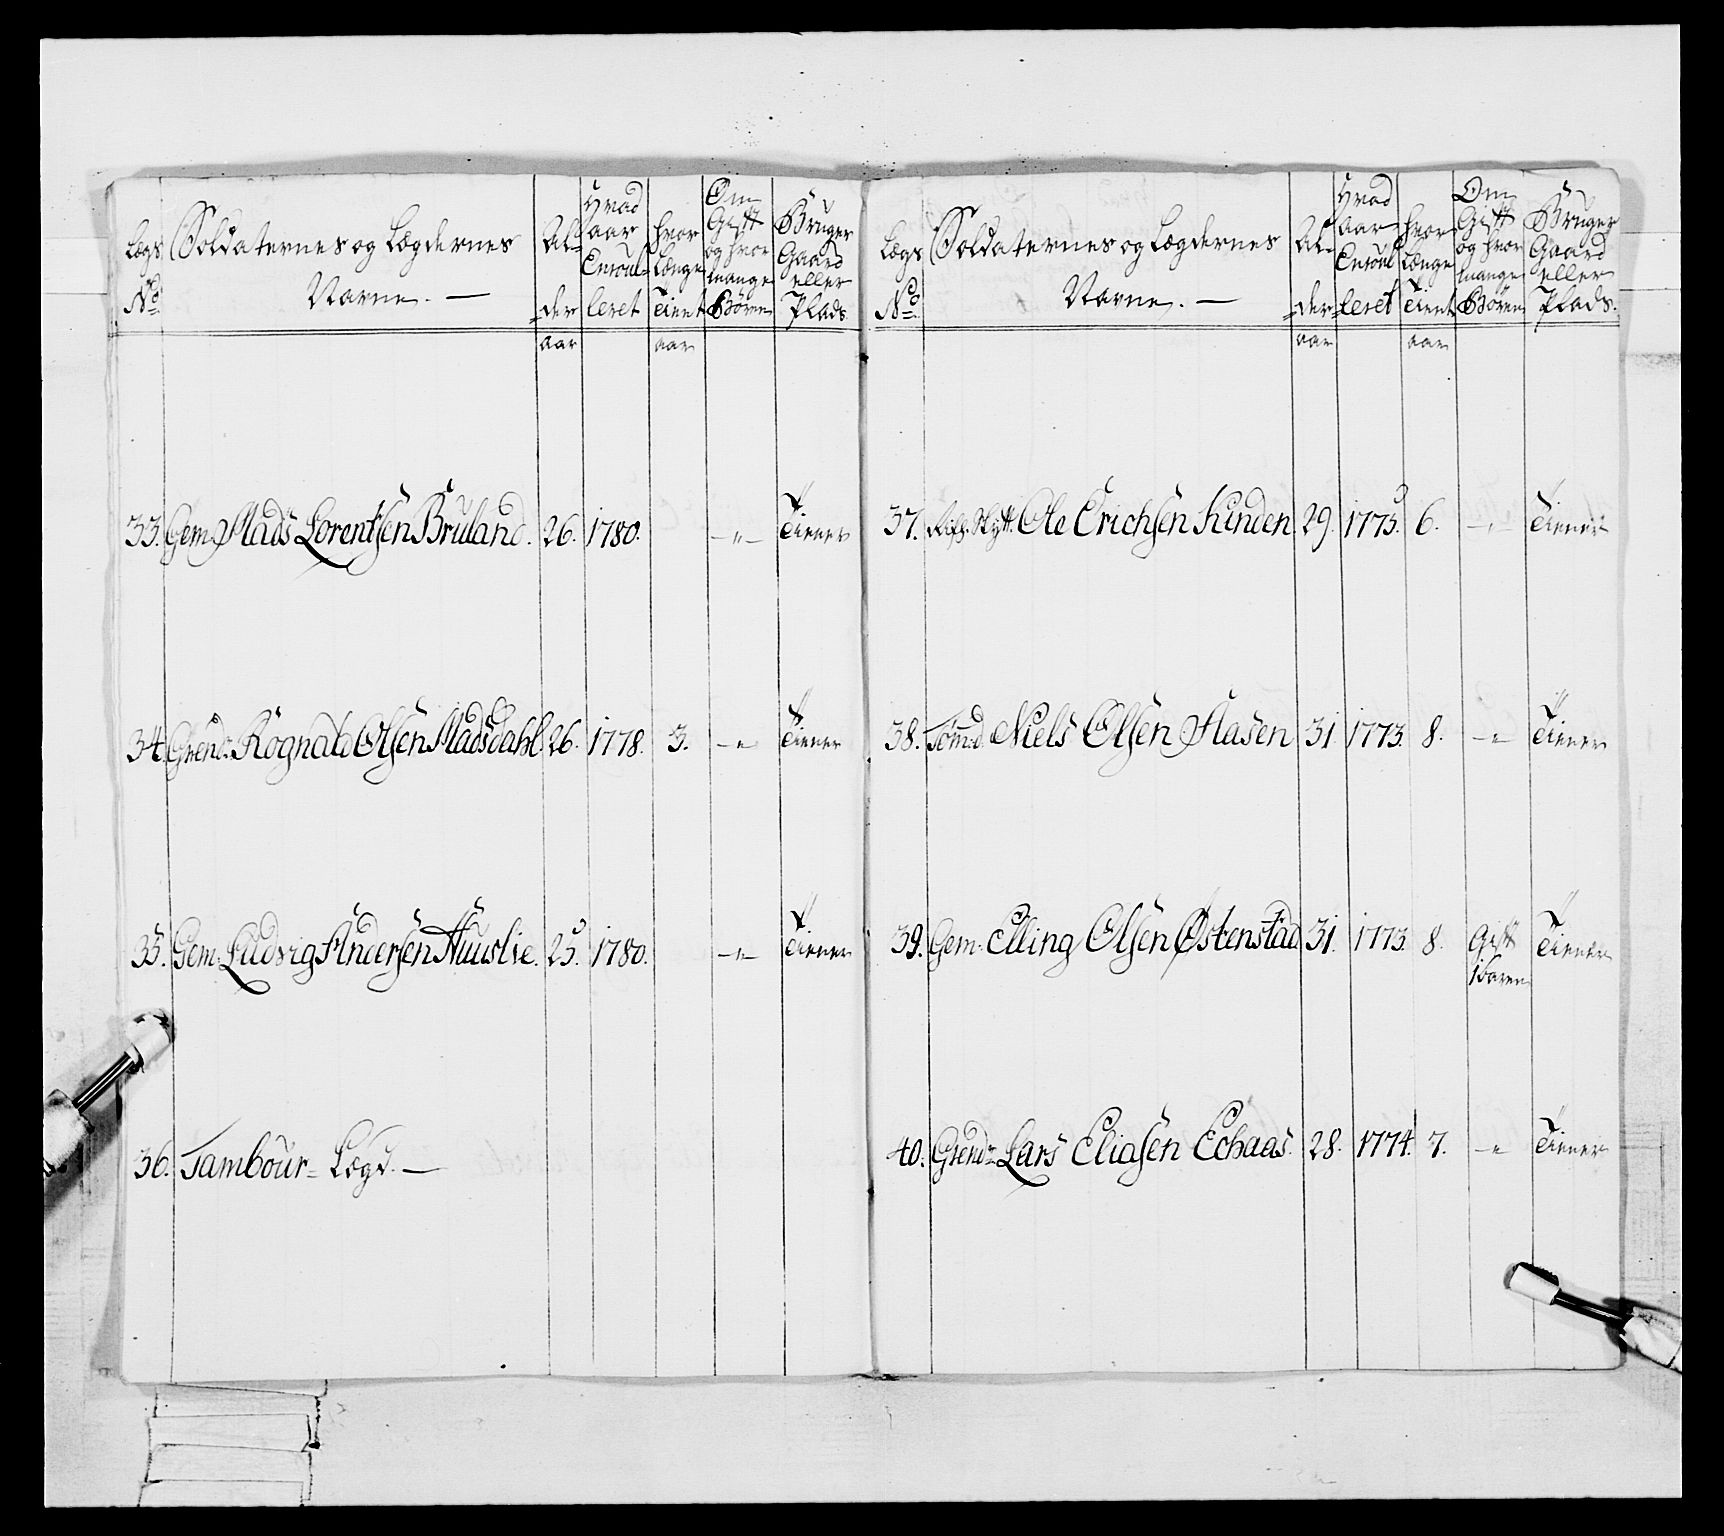 Lægs
No
Soldaternes og Lægdernes
Navne. —
Al-
der
aar
Hvad
Aar
Enroul-
leret
hvor
længe
Tient
aar
Om
Gift
og hvor
mange
Børn
Bruger
Gaard
eller
Plads.
33. Gem. Mads Lorentsen Bruland. 26. 1780. —„— Tiener
34. Grend. Rognald Olsen Madsdahl. 26. 1778. 3. —„— Tiener
35. Gem. Ludvig Andersen Huuslie. 25. 1780. —„— Tiener
36. Tambour- Lægd. —
Lægs
No
Soldaternes og Lægdernes
Navne. —
Al-
der
aar
Hvad
Aar
Enroul
leret
hvor
længe
Tient
aar
Om
Gift
og hvor
mange
Børn
Bruger
Gaard
eller
Plads.
37. Ole Erichsen Kinden 29. 1775. 6. —„— Tiener
38. Tømd. Niels Olsen Aasen 31 1773. 8. —„— Tiener
39. Gem. Elling Olsen Østenstad 31. 1773. 8. Gift Tiener
1 barn
40. Grendr. Lars Eliasen Echaas. 28. 1774. 7. —„ Tiener